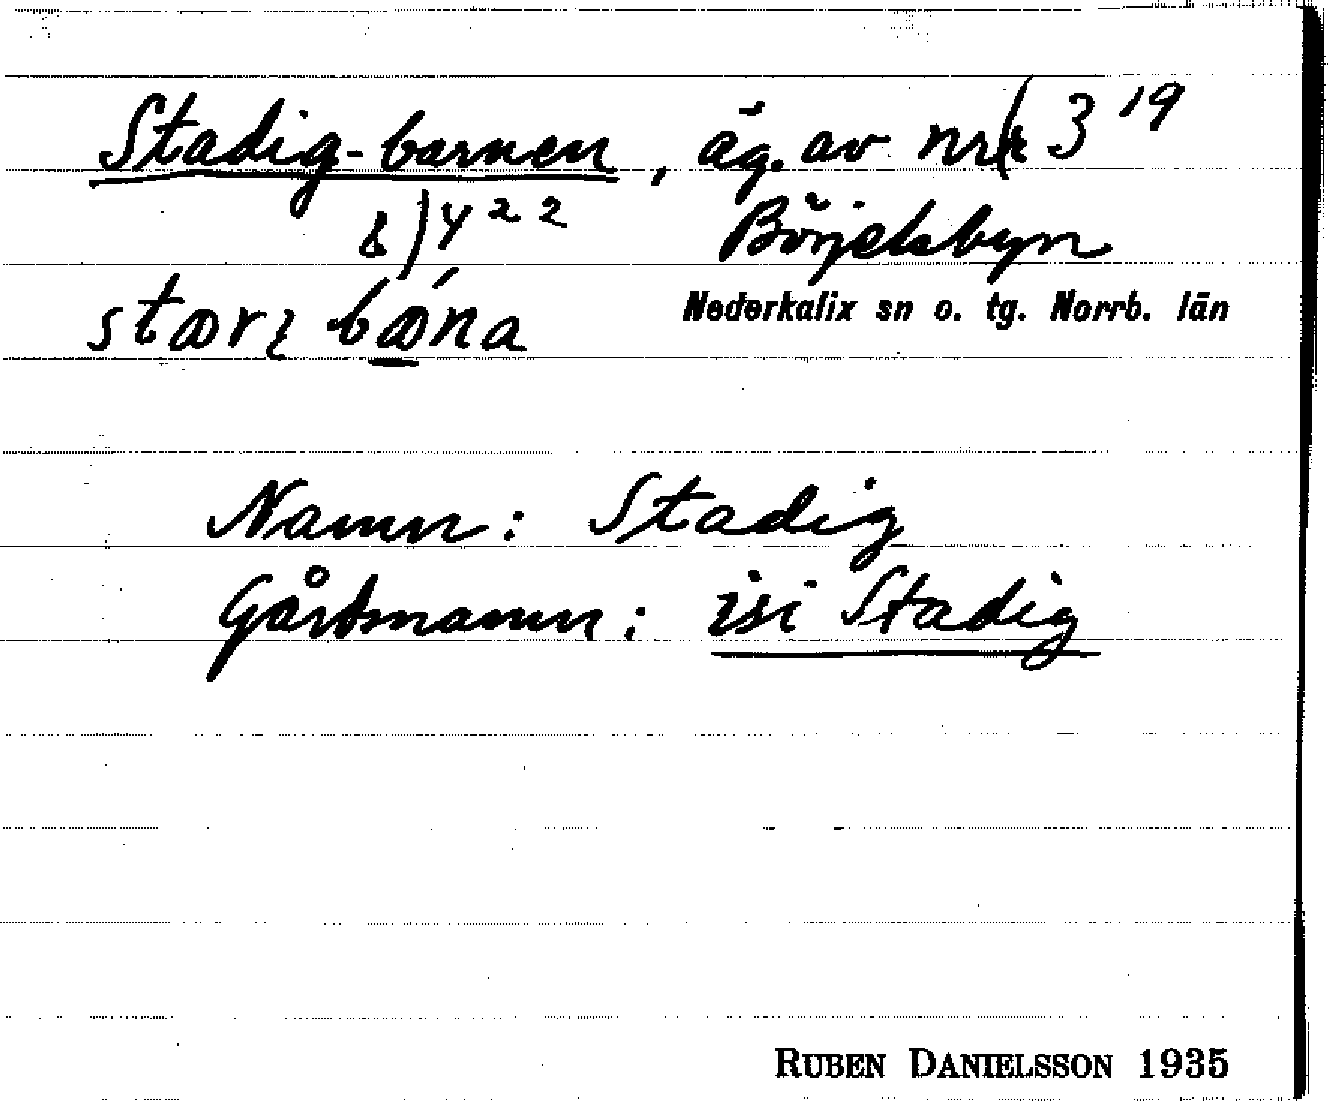 Stadig-barnen, äg. av nr 3¹⁹
&) 4²² Börjelsbyn
stæri bǽna Nederkalix sn o. tg. Norrb. län
Namn: Stadig
Gårdsnamn: isi Stadig
RUBEN DANIELSSON 1935